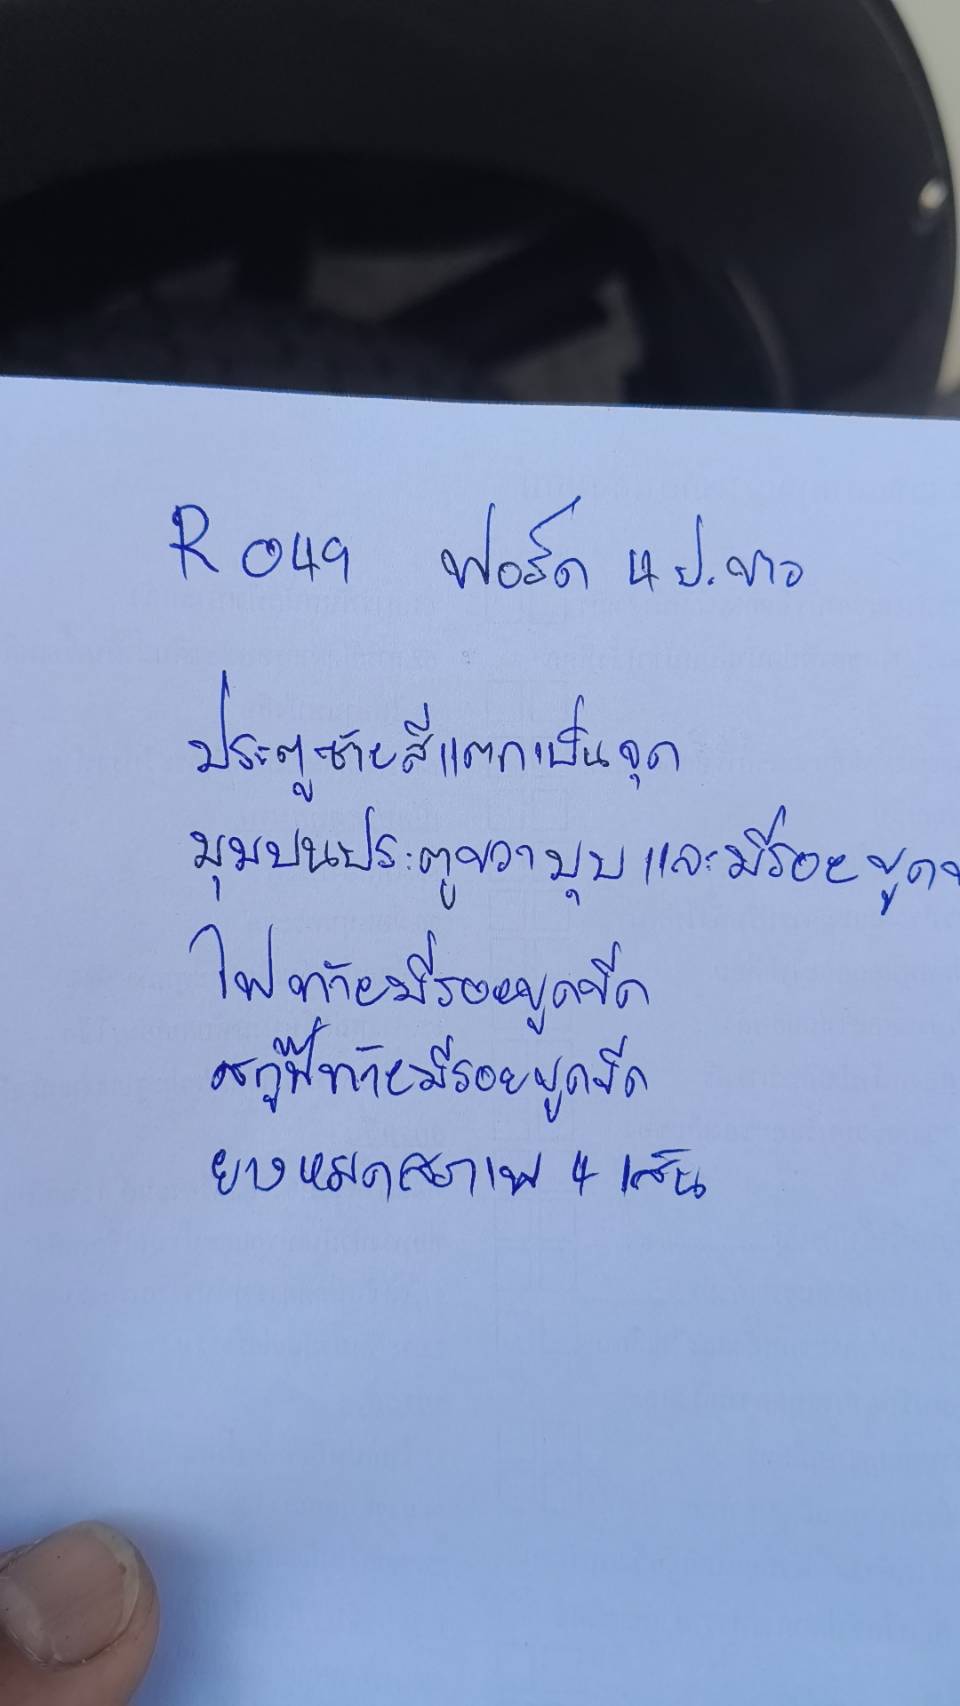 R 049 ฟอร์ด 4 ป. ขาว
ประตูซ้ายสีแตกเป็นจุด
มุมบนประตูขวาบุบ และมีรอยขูด
ไฟท้ายมีรอยขูดขีด
สกู๊ฟท้ายมีรอยขูดขีด
ยางหมดสภาพ 4 เส้น